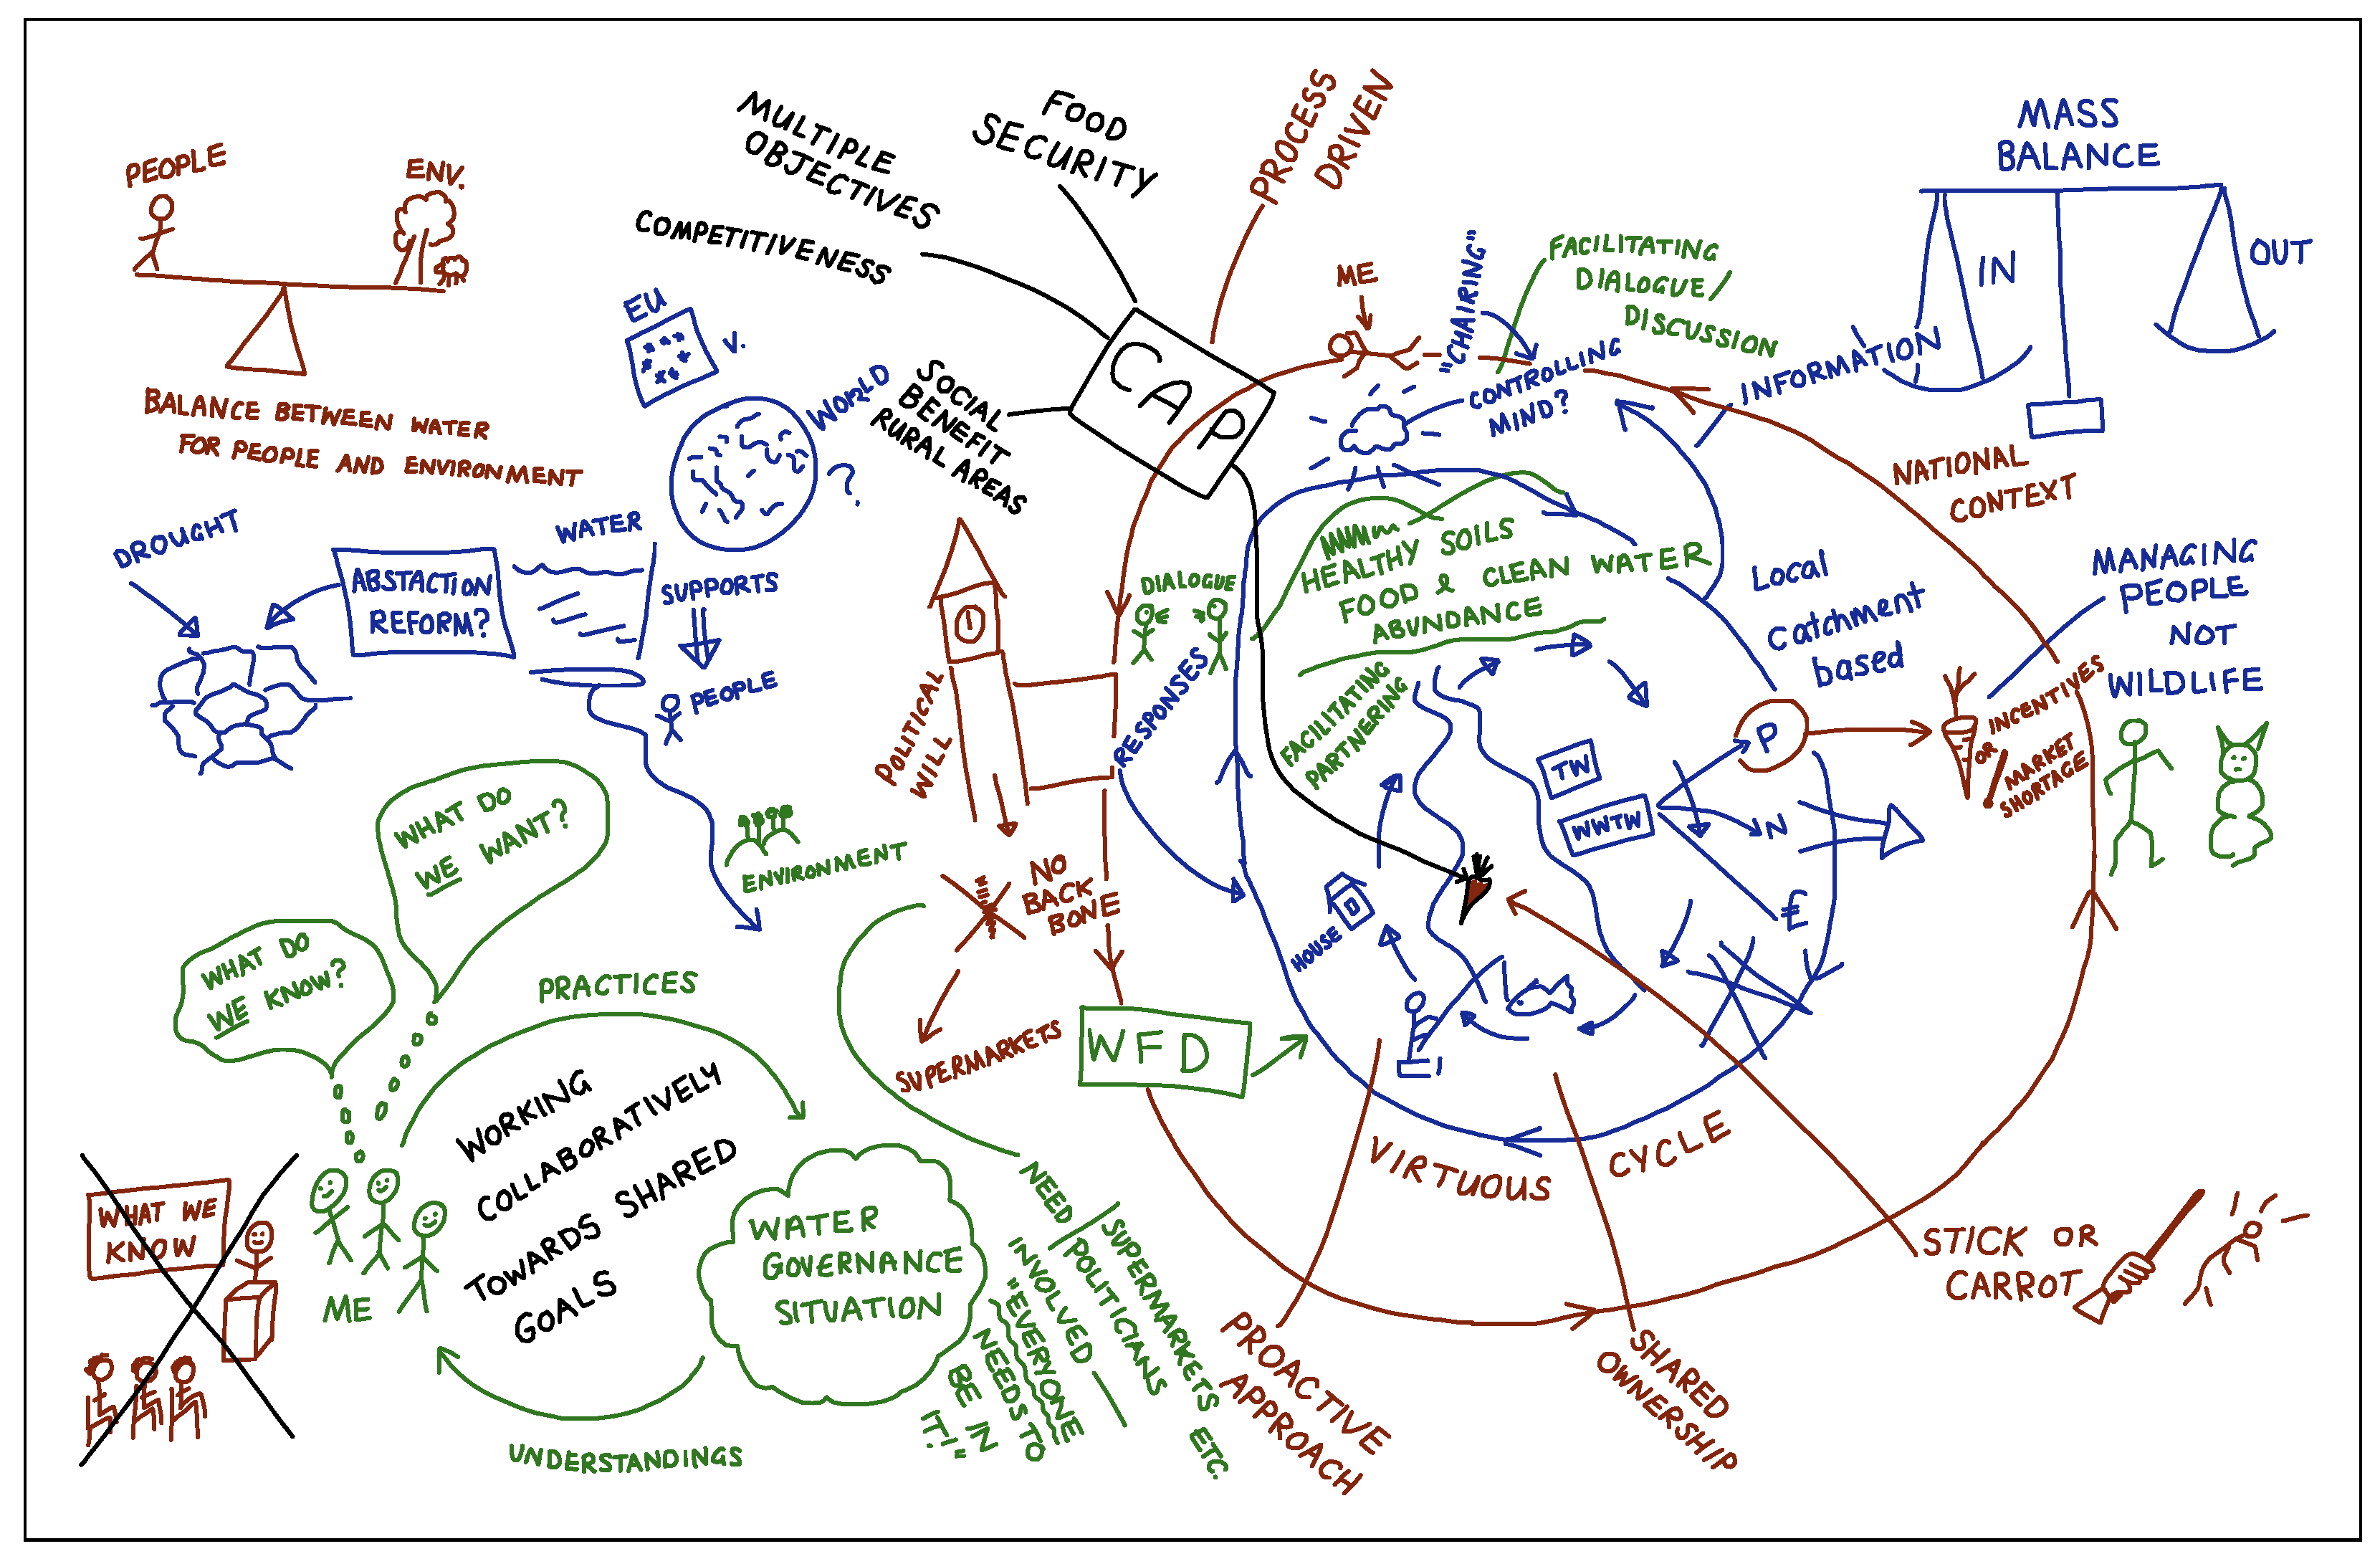 PEOPLE
ENV.
BALANCE BETWEEN WATER
FOR PEOPLE AND ENVIRONMENT
MULTIPLE
OBJECTIVES
COMPETITIVENESS
FOOD
SECURITY
PROCESS
DRIVEN
EU
V.
WORLD
?
SOCIAL
BENEFIT
RURAL AREAS
CAP
ME
"CHAIRING"
FACILITATING
DIALOGUE/
DISCUSSION
CONTROLLING
MIND?
INFORMATION
MASS
BALANCE
IN
OUT
NATIONAL
CONTEXT
DROUGHT
ABSTACTION
REFORM?
WATER
SUPPORTS
PEOPLE
ENVIRONMENT
POLITICAL
WILL
DIALOGUE
RESPONSES
HEALTHY SOILS
FOOD & CLEAN WATER
ABUNDANCE
FACILITATING
PARTNERING
Local
Catchment
based
MANAGING
PEOPLE
NOT
WILDLIFE
TW
WWTW
P
N
£
INCENTIVES
OR
MARKET
SHORTAGE
HOUSE
NO
BACK
BONE
SUPERMARKETS
WFD
VIRTUOUS CYCLE
STICK OR
CARROT
PROACTIVE
APPROACH
SHARED
OWNERSHIP
WHAT DO
WE WANT?
WHAT DO
WE KNOW?
PRACTICES
WORKING
COLLABORATIVELY
TOWARDS SHARED
GOALS
WHAT WE
KNOW
ME
WATER
GOVERNANCE
SITUATION
UNDERSTANDINGS
NEED
SUPERMARKETS ETC.
POLITICIANS
INVOLVED
"EVERYONE
NEEDS TO
BE IN
IT!"